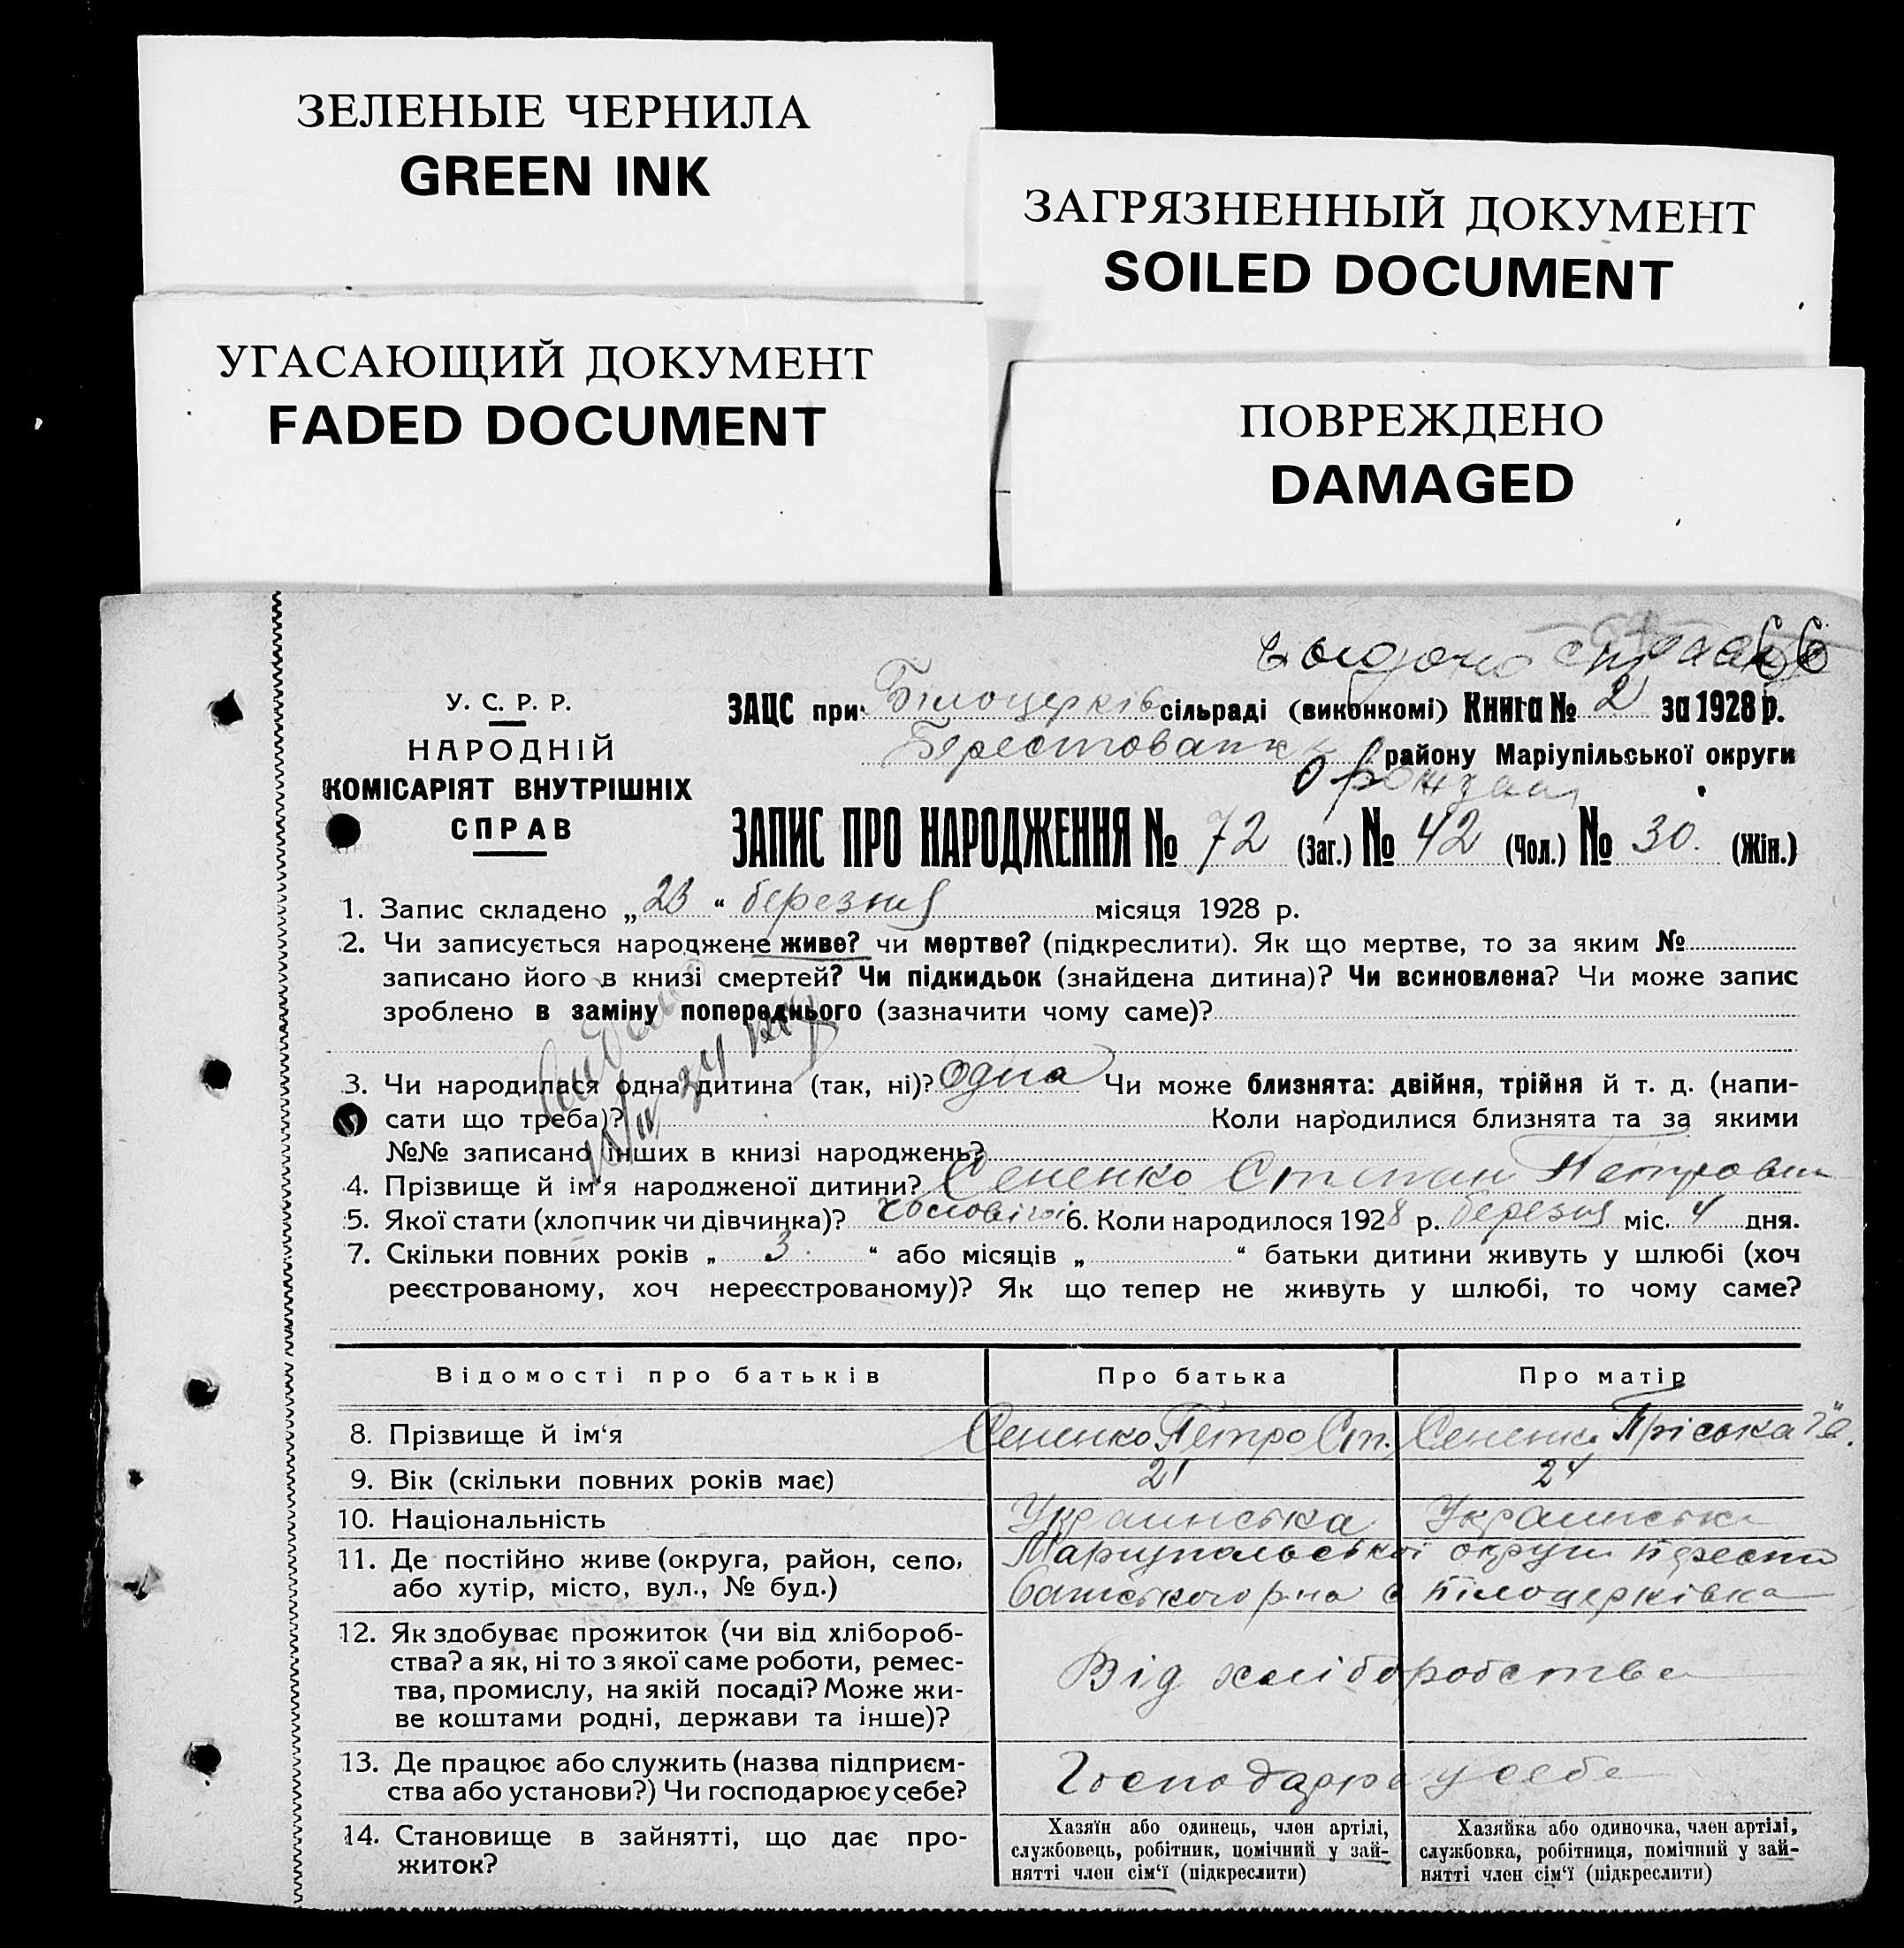 ЗЕЛЕНЫЕ ЧЕРНИЛА
GREEN INK
ЗАГРЯЗНЕННЫЙ ДОКУМЕНТ
SOILED DOCUMENT
УГАСАЮЩИЙ ДОКУМЕНТ
FADED DOCUMENT
ПОВРЕЖДЕНО
DAMAGED
У. С. Р. Р.
НАРОДНІЙ
КОМІСАРІЯТ ВНУТРІШНІХ
СПРАВ
ЗАЦС при Білоцерків сільраді (виконкомі) Книга № 2 за 1928 р.
району Маріупільської округи
ЗАПИС ПРО НАРОДЖЕННЯ № 72 (Заг.) № 42 (Чол.) № 30. (Жін.)
1. Запис складено „23“ березня місяця 1928 р.
2. Чи записується народжене живе? чи мертве? (підкреслити). Як що мертве, то за яким №
записано його в книзі смертей? Чи підкидьок (знайдена дитина)? Чи всиновлена? Чи може запис
зроблено в заміну попереднього (зазначити чому саме)?
3. Чи народилася одна дитина (так, ні)? Одна Чи може близнята: двійня, трійня й т. д. (напи-
сати що треба)? Коли народилися близнята та за якими
№№ записано інших в книзі народжень?
4. Прізвище й ім‘я народженої дитини? Сененко Степан Петрович
5. Якої стати (хлопчик чи дівчинка)? 6. Коли народилося 1928 р. березня міс. 4 дня.
7. Скільки повних років „ 3. “ або місяців „ “ батьки дитини живуть у шлюбі (хоч
реєстрованому, хоч нереєстрованому)? Як що тепер не живуть у шлюбі, то чому саме?
Відомості про батьків Про батька Про матір
8. Прізвище й ім‘я Сененко Петро Ст. Сененко Пріська
9. Вік (скільки повних років має) 21 24
10. Національність Украинська Украинська
11. Де постійно живе (округа, район, село, Марiупольської округи Бересто
або хутір, місто, вул., № буд.) ванського р-на с Білоцерківка
12. Як здобуває прожиток (чи від хлібороб-
ства? а як, ні то з якої саме роботи, ремес-
тва, промислу, на якій посаді? Може жи-
ве коштами родні, держави та інше)?
Від хліборобства
13. Де працює або служить (назва підприєм-
ства або установи?) Чи господарює у себе?
Господарює у себе
14. Становище в зайнятті, що дає про-
житок?
Хазяїн або одинець, член артілі,
службовець, робітник, помічний у зай-
нятті член сім‘ї (підкреслити)
Хазяйка або одиночка, член артілі,
службовка, робітниця, помічний у зай-
нятті член сім‘ї (підкреслити)